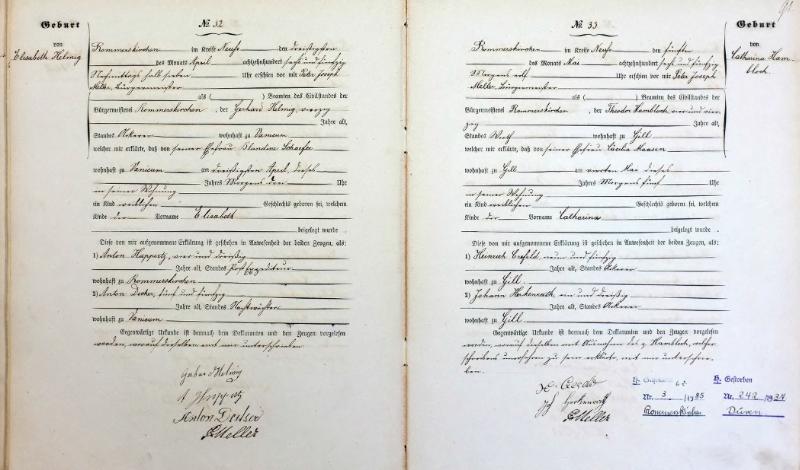 Geburt
von
Elisabeth Helmig
№ 32
Rommerskirchen im Kreise Neuß den dreißigsten
des Monats April achtzehnhundert sechs und fünfzig
Nachmittags halb sieben Uhr erschien vor mir Peter Joseph
Meller, Bürgermeister
als ( ) Beamten des Civilstandes der
Bürgermeisterei Rommerskirchen, der Gerhard Helmig, vierzig
Jahre alt,
Standes Ackerer wohnhaft zu Vanicum
welcher mir erklärte, daß von seiner Ehefrau Blandina Schaefer
wohnhaft zu Vanicum am dreißigsten April, dieses
Jahres Morgens drei Uhr
in seiner Wohnung
ein Kind weiblichen Geschlechts geboren sei, welchem
Kinde der Vorname Elisabeth
beigelegt wurde
Diese von mir aufgenommene Erklärung ist geschehen in Anwesenheit der beiden Zeugen, als:
1) Anton Happertz, vier und dreißig
Jahre alt, Standes Post Expediteur
wohnhaft zu Rommerskirchen
2) Anton Decker, fünf und fünfzig
Jahre alt, Standes Nachtwächter
wohnhaft zu Vanicum
Gegenwärtige Urkunde ist demnach dem Deklaranten und den Zeugen vorgelesen
worden, worauf dieselben mit mir unterschrieben
Helmig
Anton Decker
P Meller
Geburt
von
Catharina Ham-
bloch
№ 33
Rommerskirchen im Kreise Neuß den fünften
des Monats Mai achtzehnhundert sechs und fünfzig
Morgens acht Uhr erschien vor mir Peter Joseph
Meller, Bürgermeister
als ( ) Beamten des Civilstandes der
Bürgermeisterei Rommerskirchen, der Theodor Hambloch vier und vier-
zig Jahre alt,
Standes Wirth wohnhaft zu Gill
welcher mir erklärte, daß von seiner Ehefrau Cäcilia Maassen
wohnhaft zu Gill am vierten Mai dieses
Jahres Morgens fünf Uhr
in seiner Wohnung
ein Kind weiblichen Geschlechts geboren sei, welchem
Kinde der Vorname Catharina
beigelegt wurde
Diese von mir aufgenommene Erklärung ist geschehen in Anwesenheit der beiden Zeugen, als:
1) Heinrich Crefeld, ein und fünfzig
Jahre alt, Standes Ackerer
wohnhaft zu Gill
2) Johann Herkenrath, ein und dreißig
Jahre alt, Standes Ackerer
wohnhaft zu Gill
Gegenwärtige Urkunde ist demnach dem Deklaranten und den Zeugen vorgelesen
worden, worauf dieselben mit Ausnahme des Hambloch, welcher
schreibens unerfahren zu sein erklärte, mit mir unterschrie-
ben.
Herkenrath
P Meller
Nr. 3 /1885
Rommerskirchen
H. Gestorben
Nr. 242 /1934
Düren